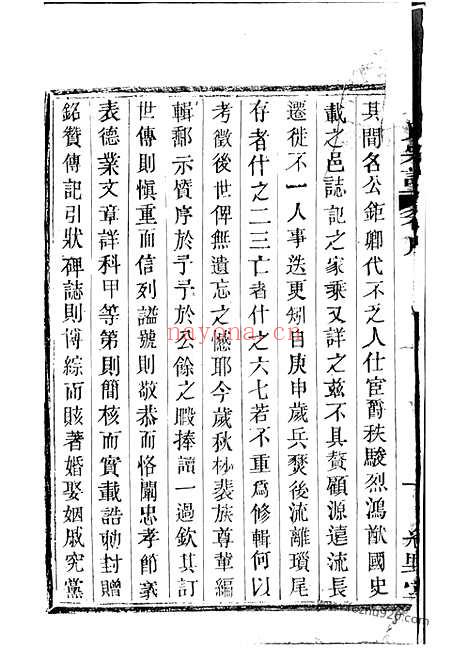 其間名公鉅卿代不乏人仕宦爵秩駿烈鴻猷國史
載之邑誌記之家乘又詳之茲不具贅顧源遠流長
遷徙不一人事迭更矧自庚申歲兵燹後流離瑣尾
存者什之二三亡者什之六七若不重為修輯何以
考徵後世俾無遺忘之憾耶今歲秋杪裴族尊輩編
輯鄀示質序於予予於公餘之暇捧讀一過欽其訂
世傳則慎重而信列謚號則敬恭而恪闡忠孝節義
表德業文章詳科甲等第則簡核而實載誥勅封贈
銘贊傳記引狀碑誌則博綜而賅著婚娶姻戚究黨
nayona.cn